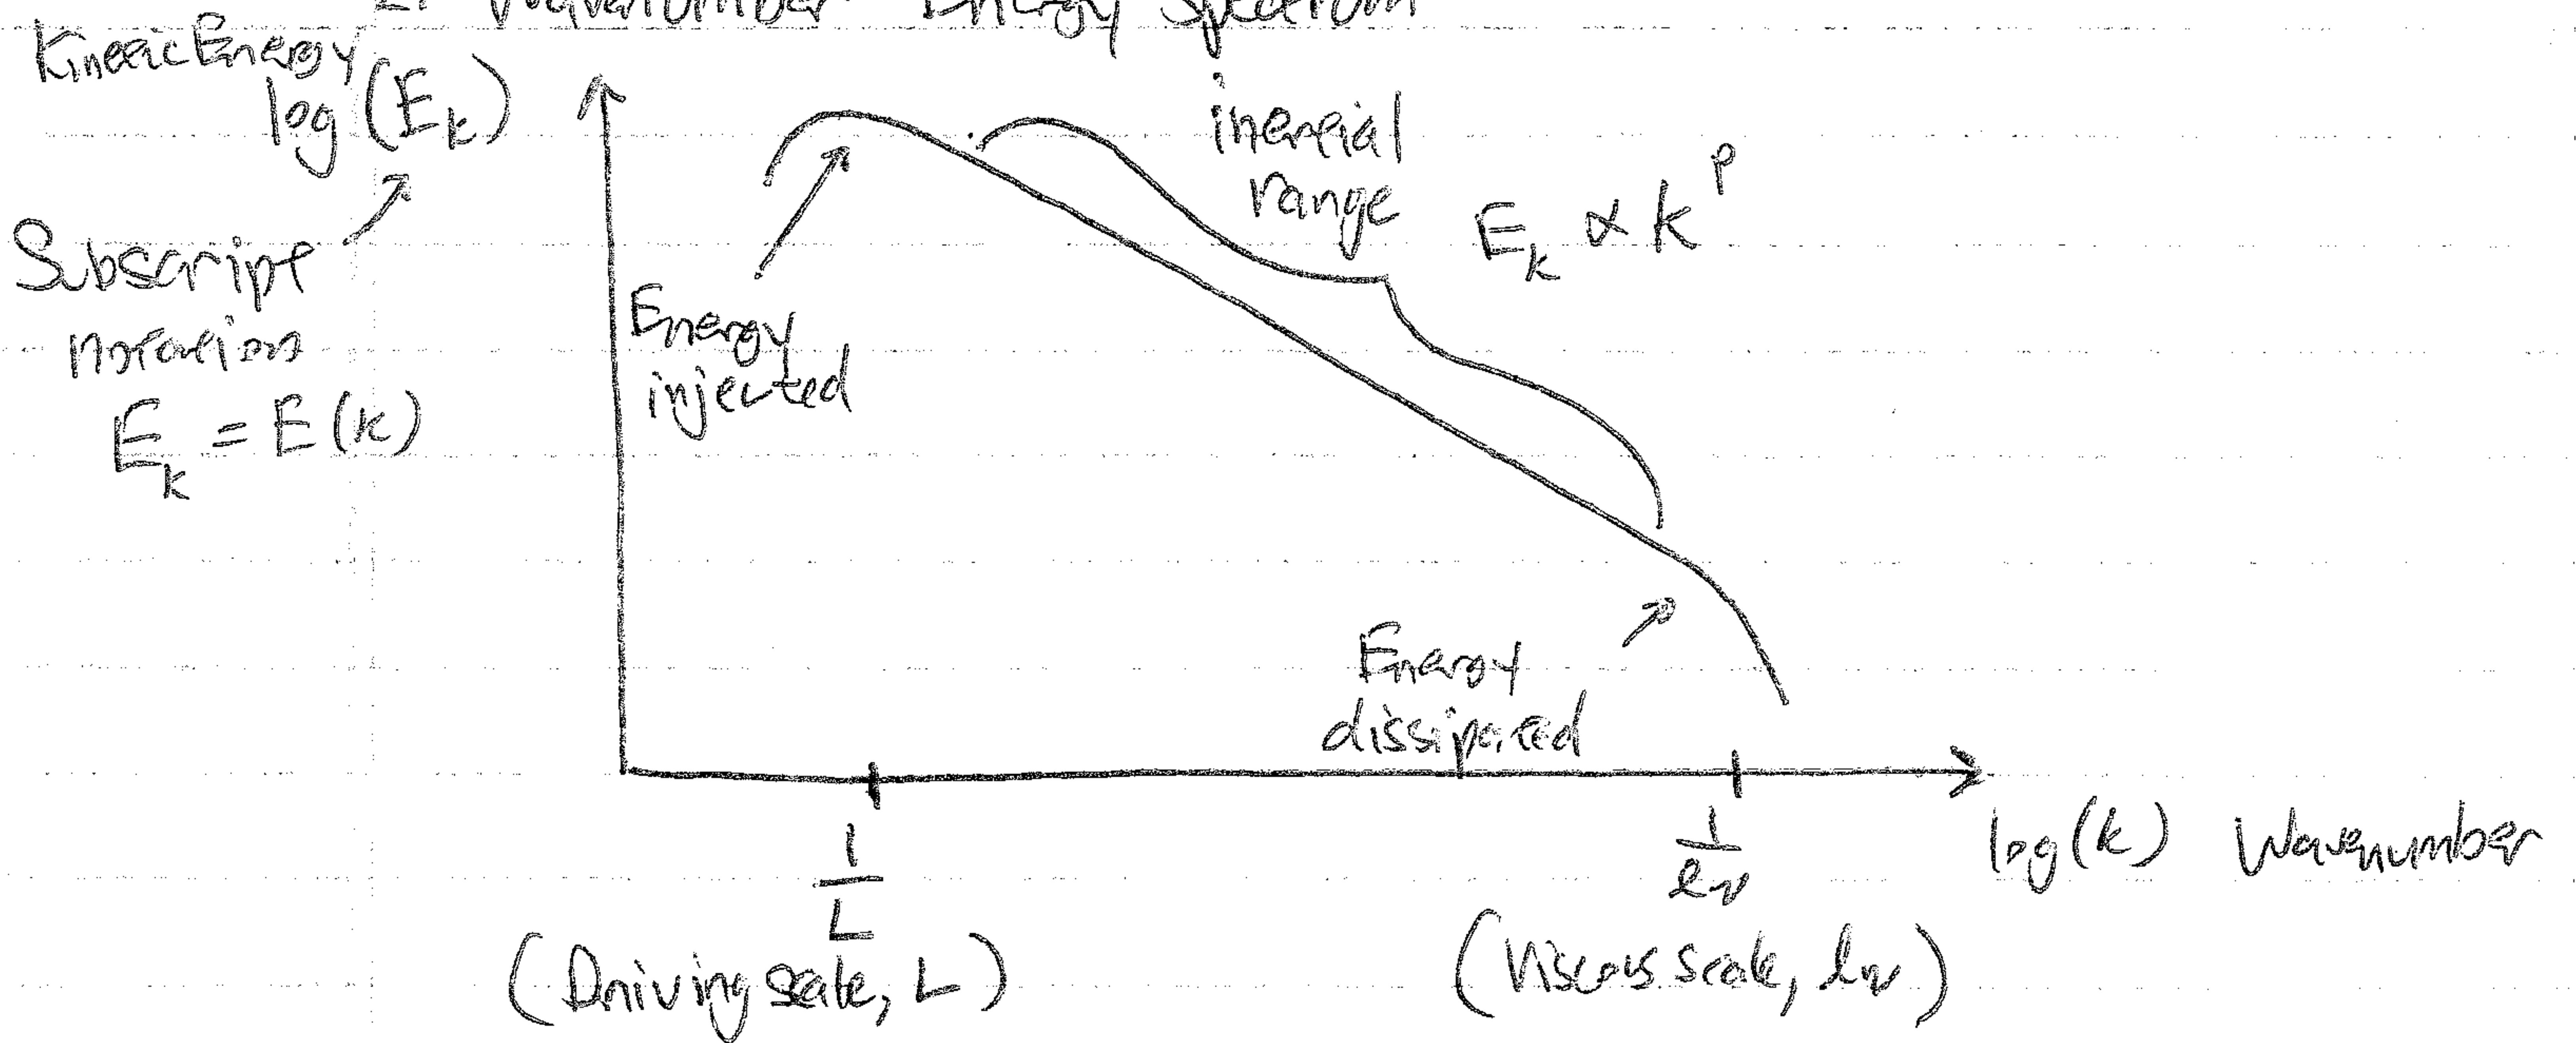 2. Wavenumber Energy Spectrum
Kinetic Energy
log(E_k)
Subscript
notation
E_k = E(k)
Energy
injected
inertial
range
E_k ∝ k^p
Energy
dissipated
1/L
(Driving scale, L)
1/l_ν
(Viscous scale, l_ν)
log(k) Wavenumber